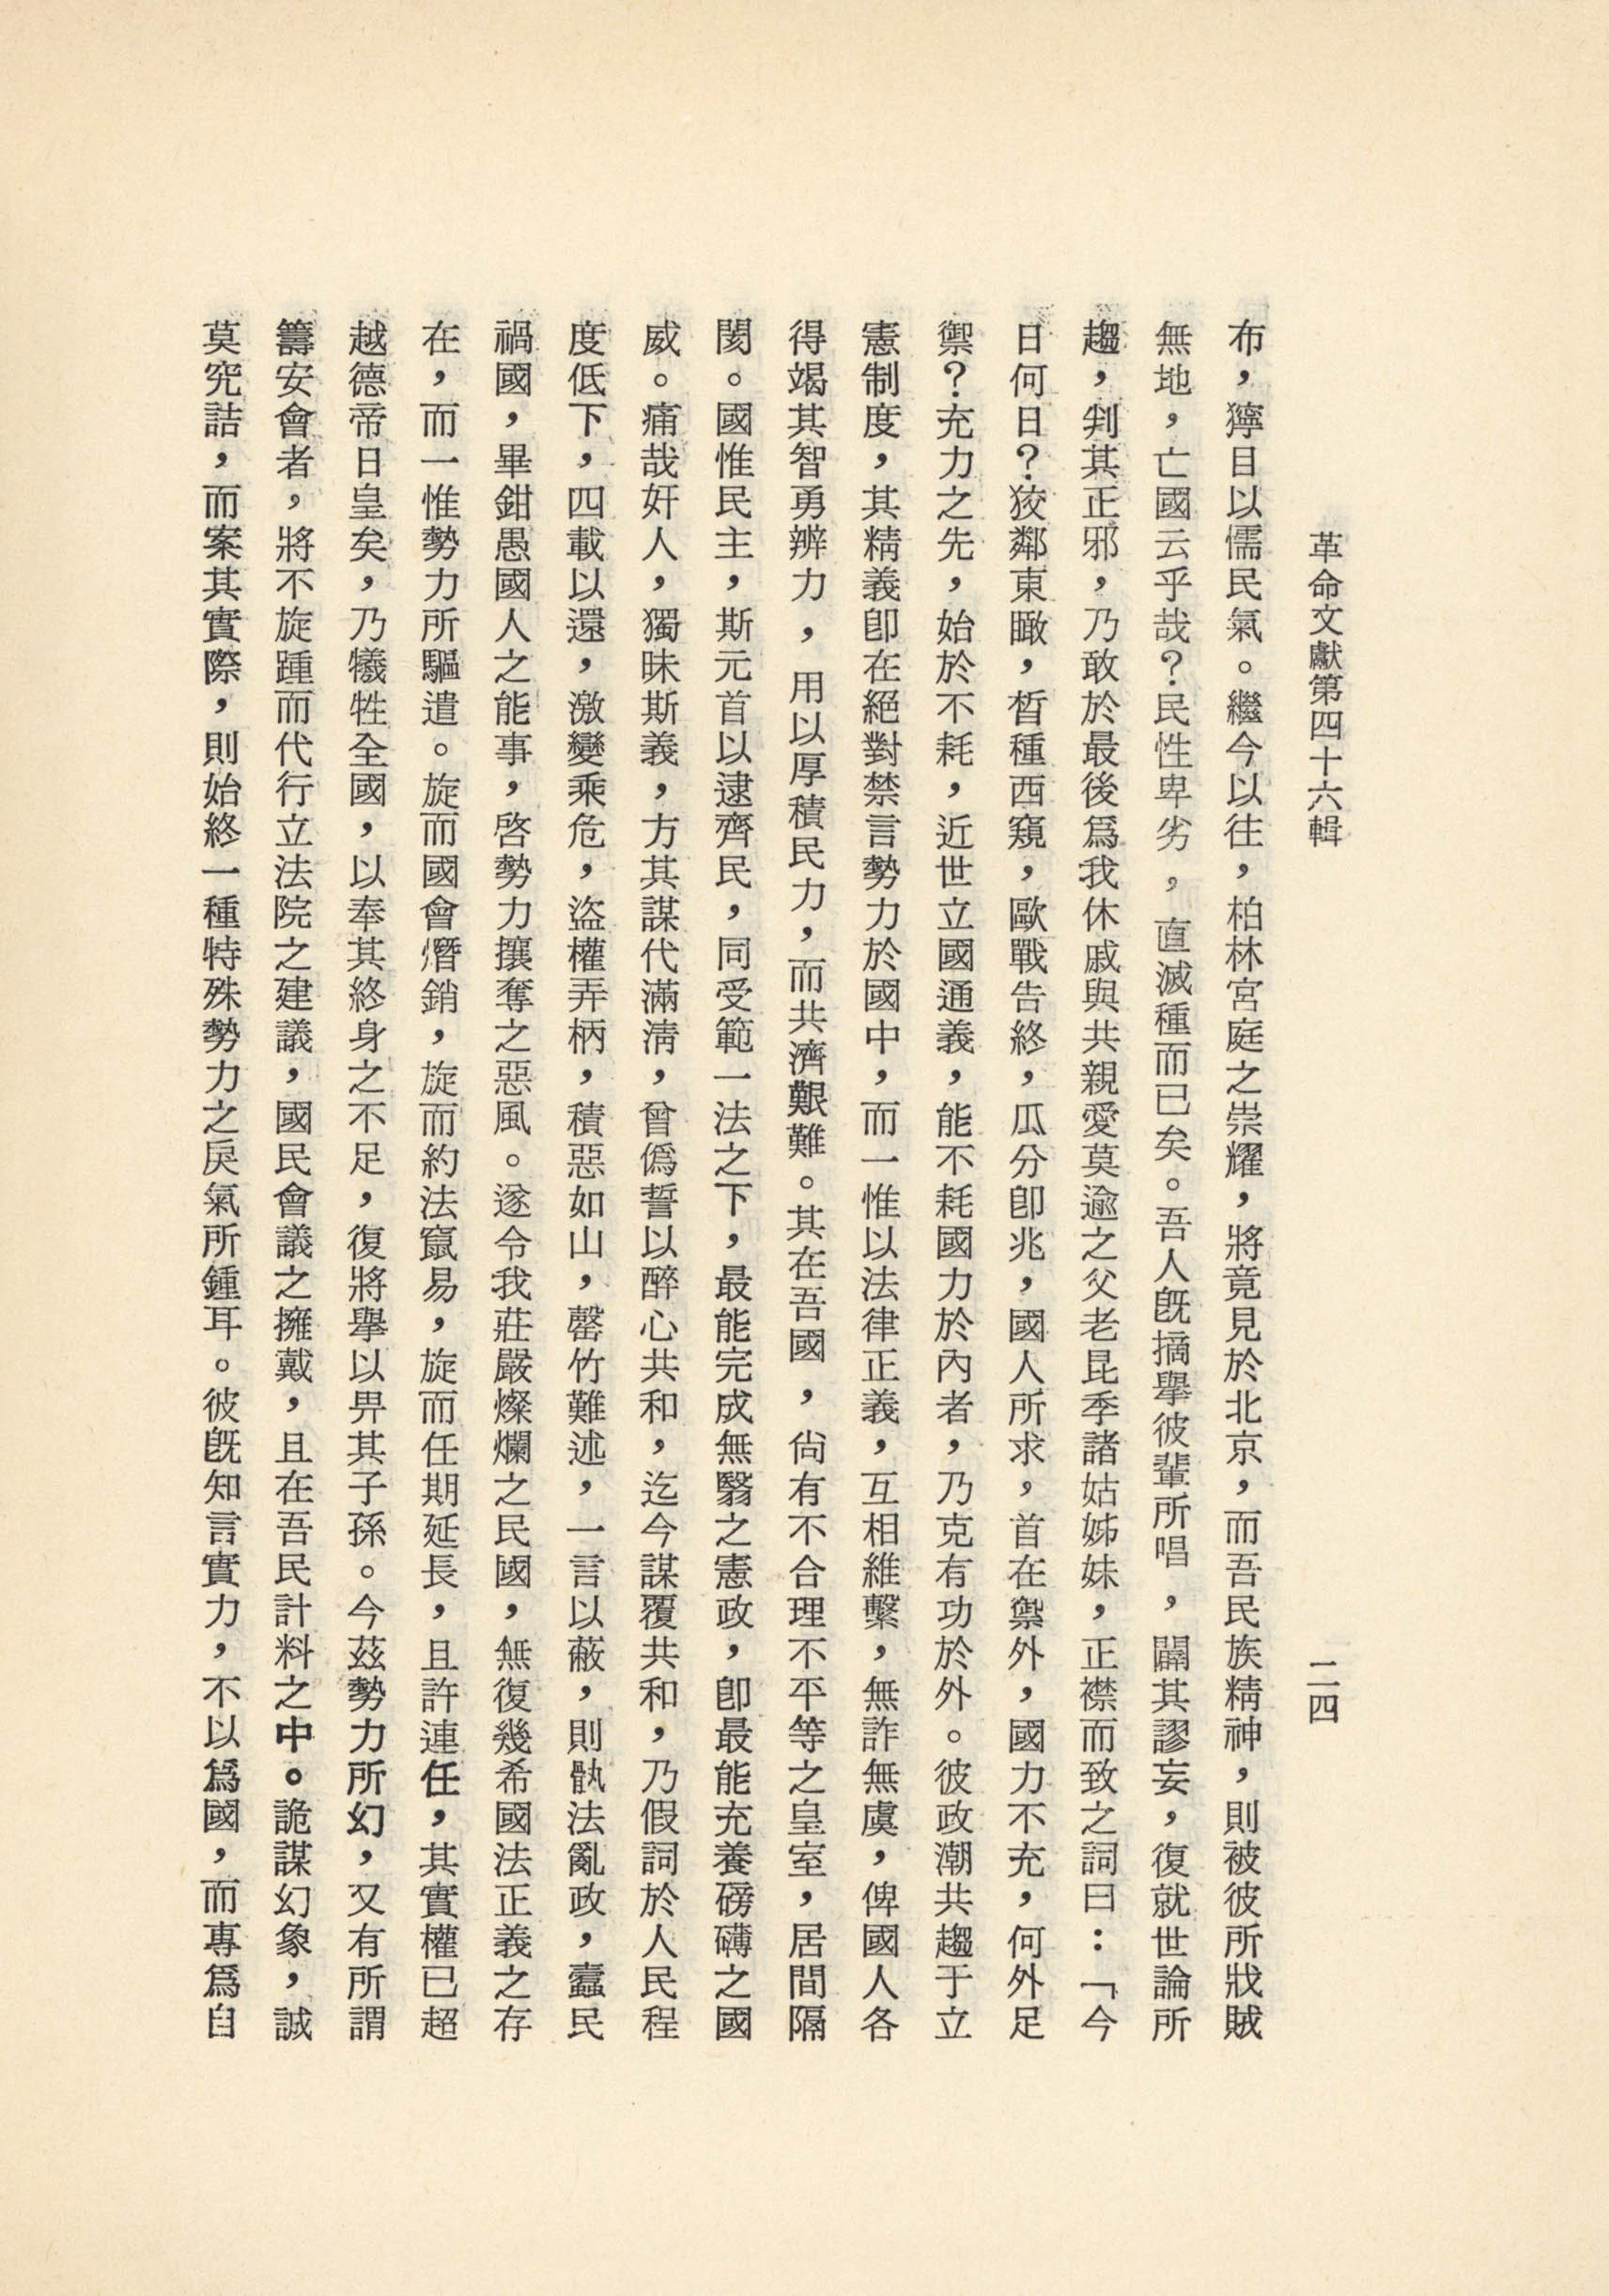 革命文獻第四十六輯
二四
布，獰目以懦民氣。繼今以往，柏林宮庭之崇耀，將竟見於北京，而吾民族精神，則被彼所戕賊
無地，亡國云乎哉？民性卑劣，直滅種而已矣。吾人旣摘擧彼輩所唱，闢其謬妄，復就世論所
趨，判其正邪，乃敢於最後爲我休戚與共親愛莫逾之父老昆季諸姑姊妹，正襟而致之詞曰：「今
日何日？狡鄰東瞰，晳種西窺，歐戰告終，瓜分卽兆，國人所求，首在禦外，國力不充，何外足
禦？充力之先，始於不耗，近世立國通義，能不耗國力於內者，乃克有功於外。彼政潮共趨于立
憲制度，其精義卽在絕對禁言勢力於國中，而一惟以法律正義，互相維繫，無詐無虞，俾國人各
得竭其智勇辨力，用以厚積民力，而共濟艱難。其在吾國，尙有不合理不平等之皇室，居間隔
閡。國惟民主，斯元首以逮齊民，同受範一法之下，最能完成無翳之憲政，卽最能充養磅礴之國
威。痛哉奸人，獨昧斯義，方其謀代滿清，曾僞誓以醉心共和，迄今謀覆共和，乃假詞於人民程
度低下，四載以還，激變乘危，盜權弄柄，積惡如山，罄竹難述，一言以蔽，則骫法亂政，蠹民
禍國，畢鉗愚國人之能事，啓勢力攘奪之惡風。遂令我莊嚴燦爛之民國，無復幾希國法正義之存
在，而一惟勢力所驅遣。旋而國會熸銷，旋而約法竄易，旋而任期延長，且許連任，其實權已超
越德帝日皇矣，乃犧牲全國，以奉其終身之不足，復將擧以畀其子孫。今茲勢力所幻，又有所謂
籌安會者，將不旋踵而代行立法院之建議，國民會議之擁戴，且在吾民計料之中。詭謀幻象，誠
莫究詰，而案其實際，則始終一種特殊勢力之戾氣所鍾耳。彼旣知言實力，不以爲國，而專爲自